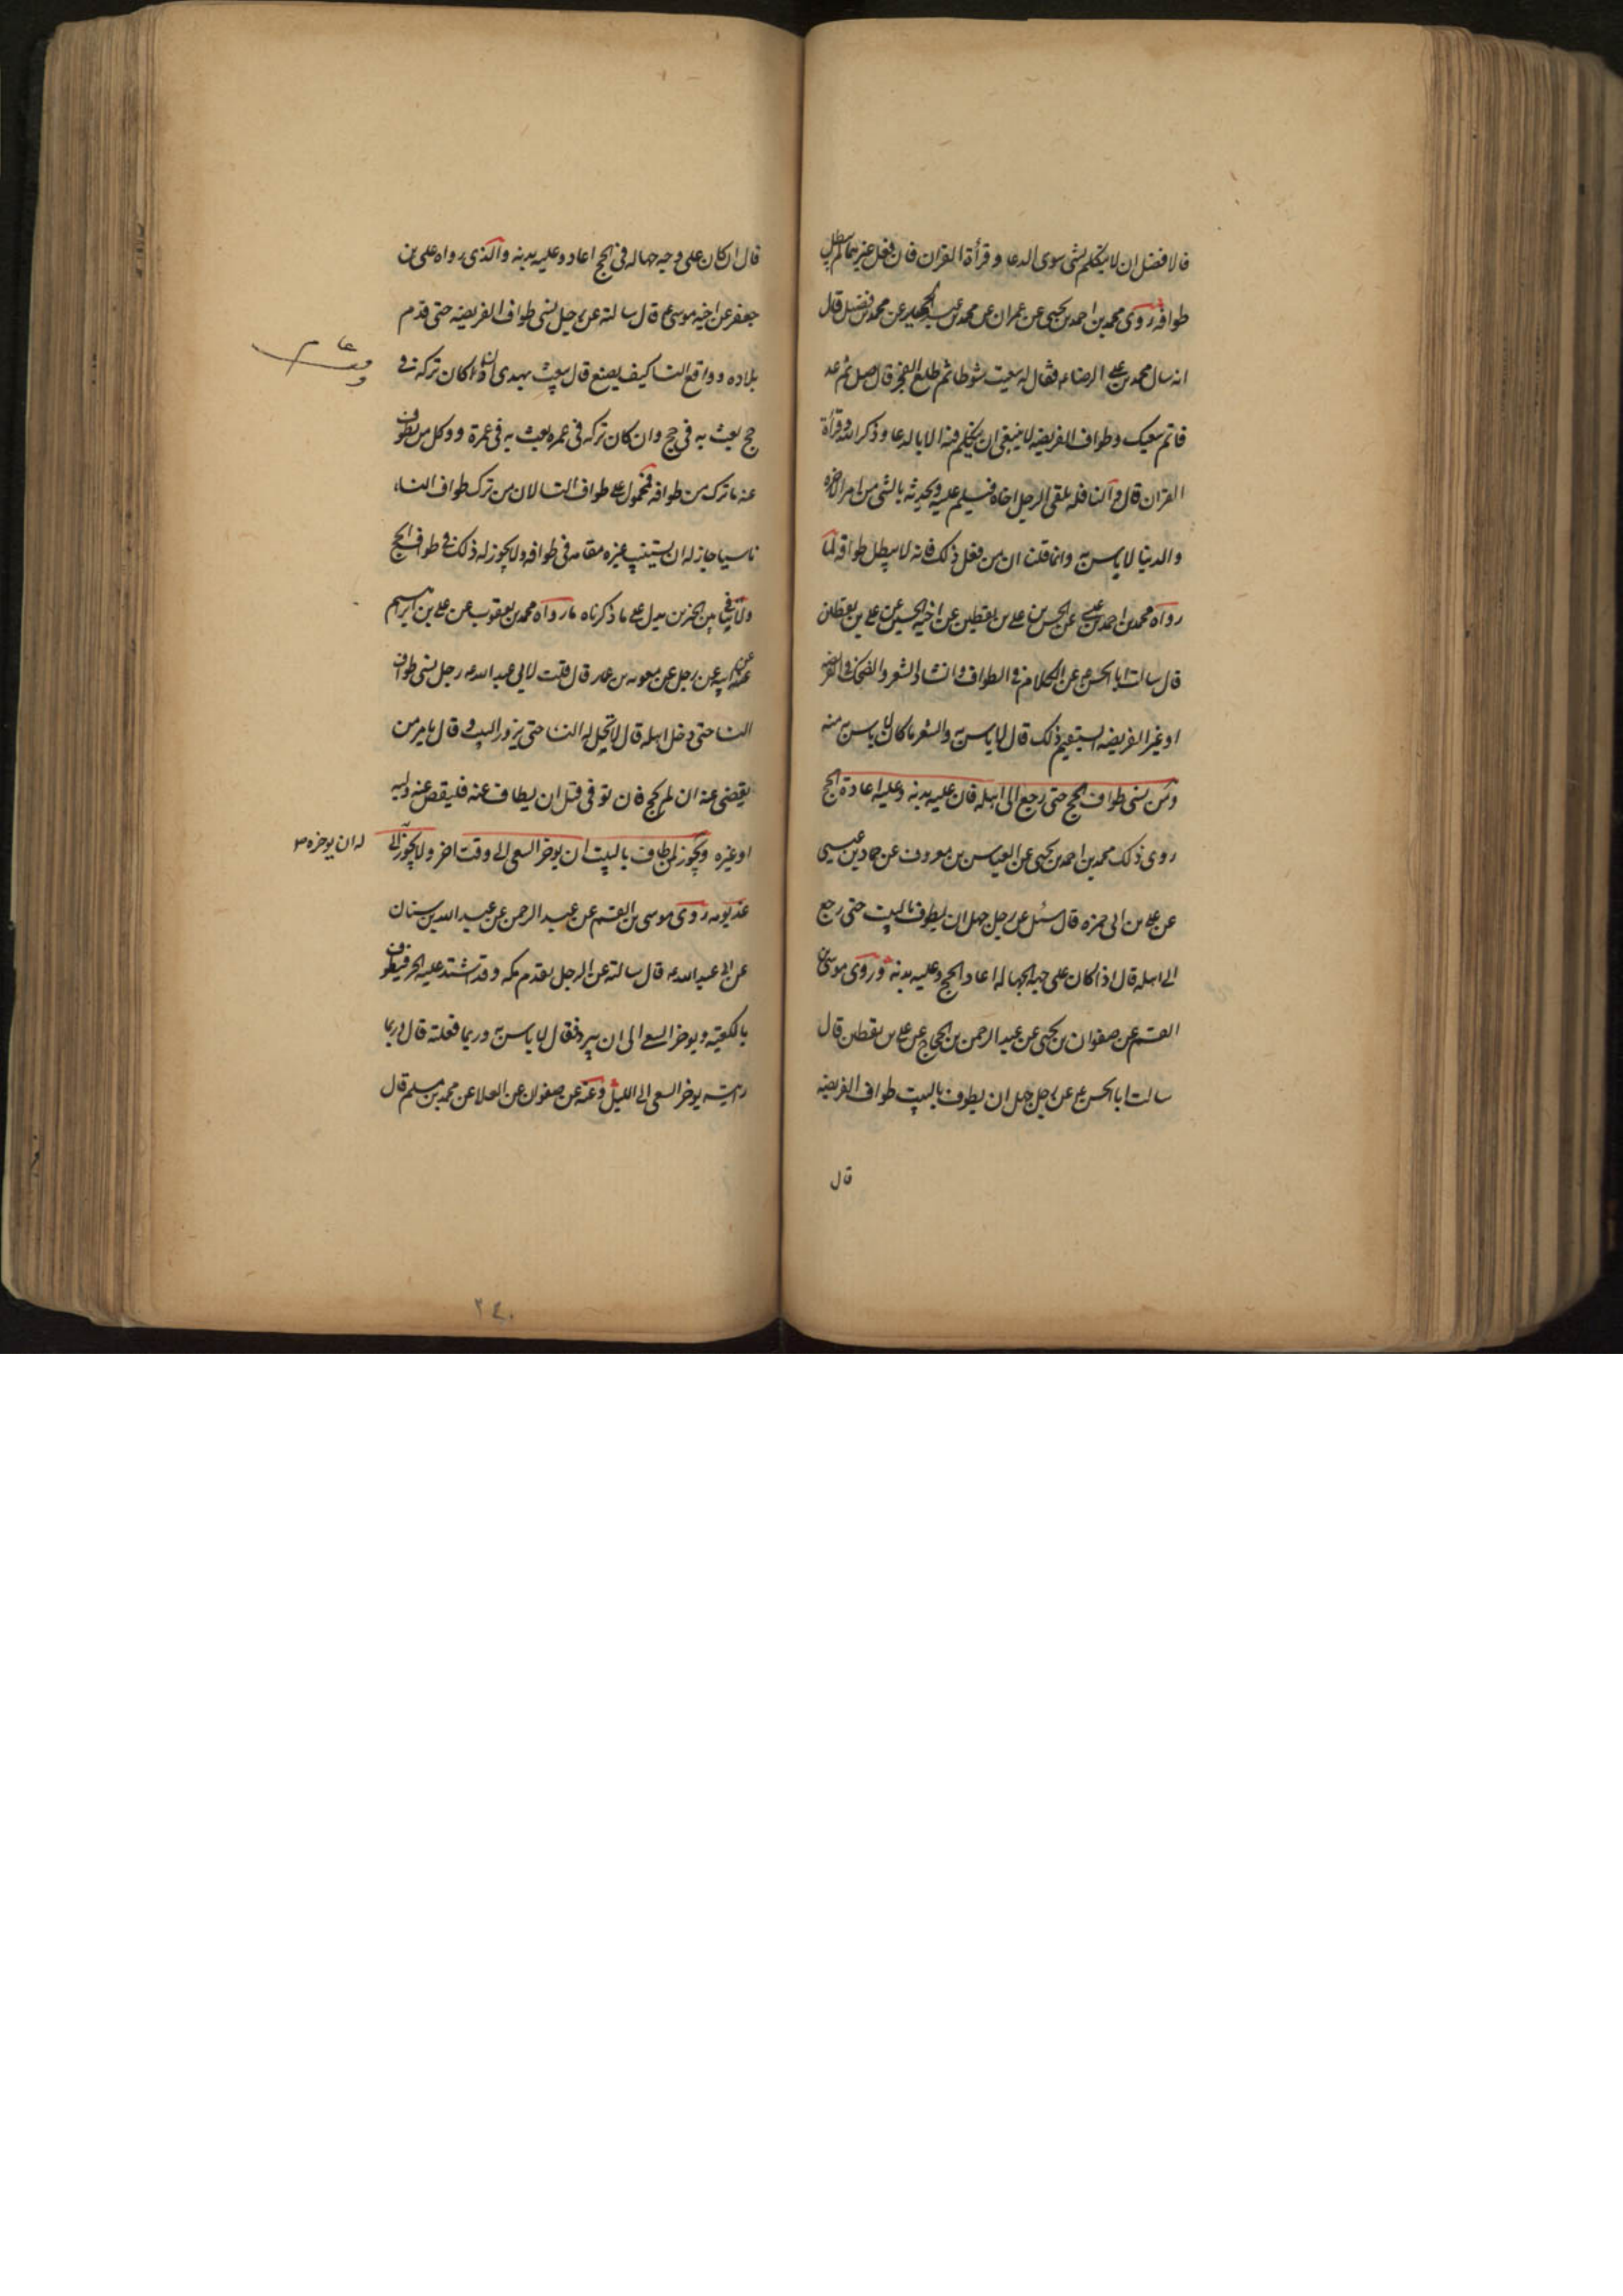 فالافضل ان لا يتكلم بشى سوى الدعا و قرأة القران فان فعل غيرهما لم يبطل
طوافه روى محمد بن احمد بن يحيى عن عمران عن محمد بن عبد الحميد عن محمد بن فضيل قال
انه سال محمد بن على الرضا ع فقال له سعيت شوطا ثم طلع الفجر قال صل ثم عد
فاتم سعيك و طواف الفريضه لا ينبغى ان يتكلم فيه الا بالدعا و ذكر الله و قرأة
القران قال و النافله يلقى الرجل اخاه فيسلم عليه و يحدثه بالشى من امر الاخره
و الدنيا لا باس به و انما قلت ان من فعل ذلك فانه لا يبطل طوافه لما
رواه محمد بن احمد بن عن الحسن بن على بن يقطين عن اخيه الحسين عن على بن يقطين
قال سالت ابا الحسن ع عن الكلام فى الطواف و انشاد الشعر و الضحك فى الفريضه
او غير الفريضه ايستقيم ذلك قال لا باس به و الشعر ما كان لا باس به منه
و من نسى طواف الحج حتى رجع الى اهله فان عليه بدنه و عليه اعادة الحج
روى ذلك محمد بن احمد بن يحيى عن العباس بن معروف عن حماد بن عيسى
عن على بن ابى حمزه قال سئل عن رجل جهل ان يطوف بالبيت حتى رجع
الى اهله قال اذا كان على جهه الجهاله اعاد الحج و عليه بدنه و روى موسى بن
القسم عن صفوان بن يحيى عن عبد الرحمن بن الحجاج عن على بن يقطين قال
سالت ابا الحسن ع عن رجل جهل ان يطوف بالبيت طواف الفريضه
قال
قال ان كان على وجه جهاله فى الحج اعاد و عليه بدنه و الذى رواه على بن
جعفر عن اخيه موسى ع قال سالته عن رجل نسى طواف الفريضه حتى قدم
بلاده و واقع النسا كيف يصنع قال يبعث بهدى ان كان تركه فى
حج يبعث به فى حج و ان كان تركه فى عمره يبعث به فى عمرة و وكل من يطوف
عنه ما ترك من طوافه فمحمول على طواف النسا لان من ترك طواف النساء
ناسيا جاز له ان يستنيب غيره مقامه فى طوافه و لا يجوز له ذلك فى طواف الحج
و لا تنافى بين الخبرين يدل على ما ذكرناه ما رواه محمد بن يعقوب عن على بن ابراهيم
عن ابيه عن رجل عن معويه بن عمار قال قلت لابى عبد الله ع رجل نسى طواف
النسا حتى دخل اهله قال لا تحل له النسا حتى يزور البيت و قال يامر من
يقضى عنه ان لم يحج فان توفى قبل ان يطاف عنه فليقض عنه وليه
او غيره و يجوز لمن طاف بالبيت ان يوخر السعى الى وقت اخر و لا يجوز الى
له ان يوخره ص
غد يومه روى موسى بن القسم عن عبد الرحمن عن عبد الله بن سنان
عن ابى عبد الله ع قال سالته عن الرجل يقدم مكه و قد اشتد عليه الحر فيطوف
بالكعبة و يوخر السعى الى ان يبرد فقال لا باس به و ربما فعلته قال و ربما
رايته يوخر السعى الى الليل و عنه عن صفوان عن العلا عن محمد بن مسلم قال
٢٤٠